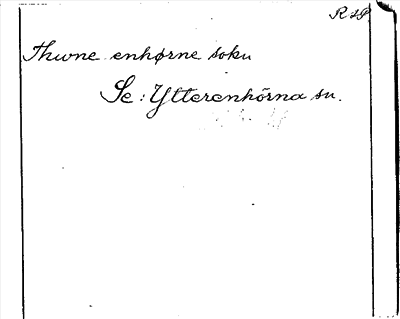 R sp
Thwne enhørne soku
Se: Ytterenhörna sn.